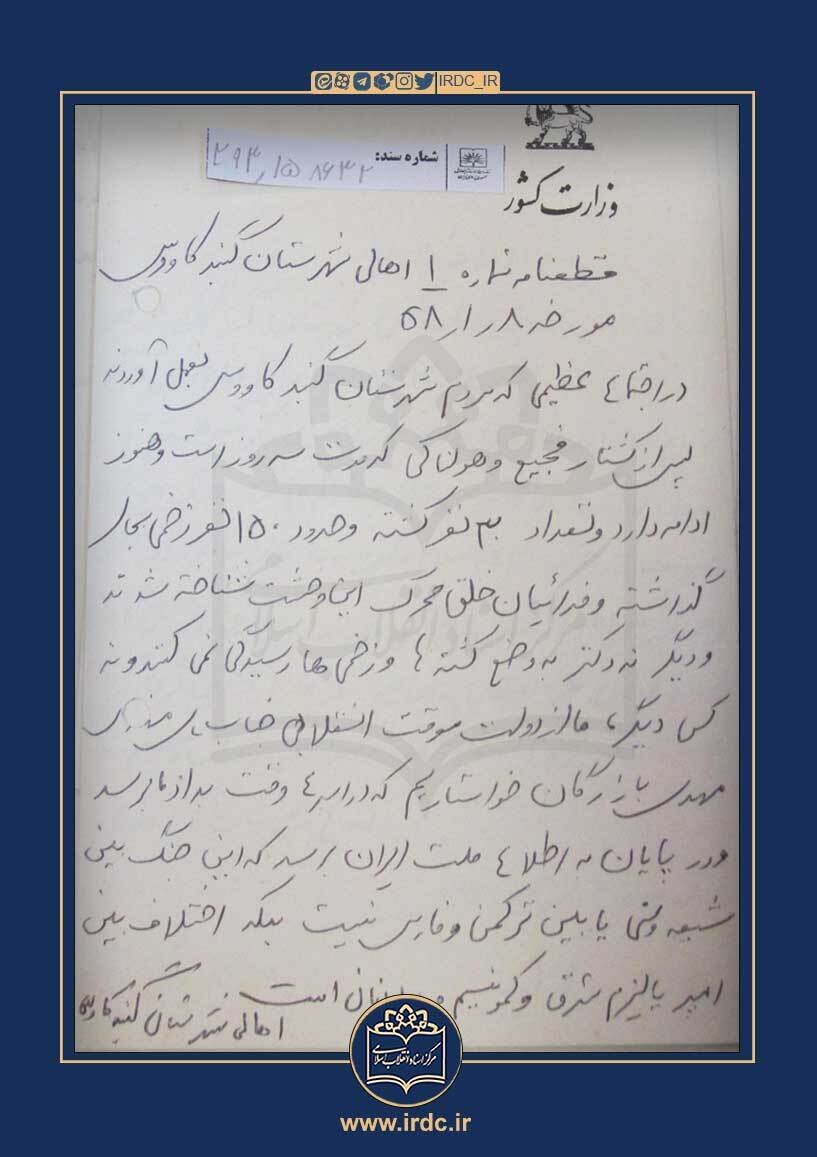 IRDC_IR
شماره سند:
وزارت کشور
قطعنامه شماره ۱ اهالی شهرستان گنبد کاووس
مورخه ۸ ر ۱ ر ۵۸
در اجتماع عظیمی که مردم شهرستان گنبد کاووس بعمل آوردند
پس از کشتار فجیع و هولناکی که مدت سه روز است و هنوز
ادامه دارد و تعداد ۳۰ نفر کشته و حدود ۱۵۰ نفر زخمی بجای
گذاشته و فدائیان خلق محرک این وحشت شناخته شدند
و دیگر نه دکتر به وضع کشته ها و زخمی ها رسیدگی نمی کنند و نه
کس دیگر، ما از دولت موقت انقلابی جناب آقای مهندس
مهدی بازرگان خواستاریم که در اسرع وقت بداد ما برسد
ودر پایان به اطلاع ملت ایران برسد که این جنگ بین
شیعه و سنی یا بین ترکمن و فارس نیست بلکه اختلاف بین
امپریالیزم شرق و کمونیسم و مسلمانان است
اهالی شهرستان گنبد کاووس
مرکز اسناد انقلاب اسلامی
www.irdc.ir